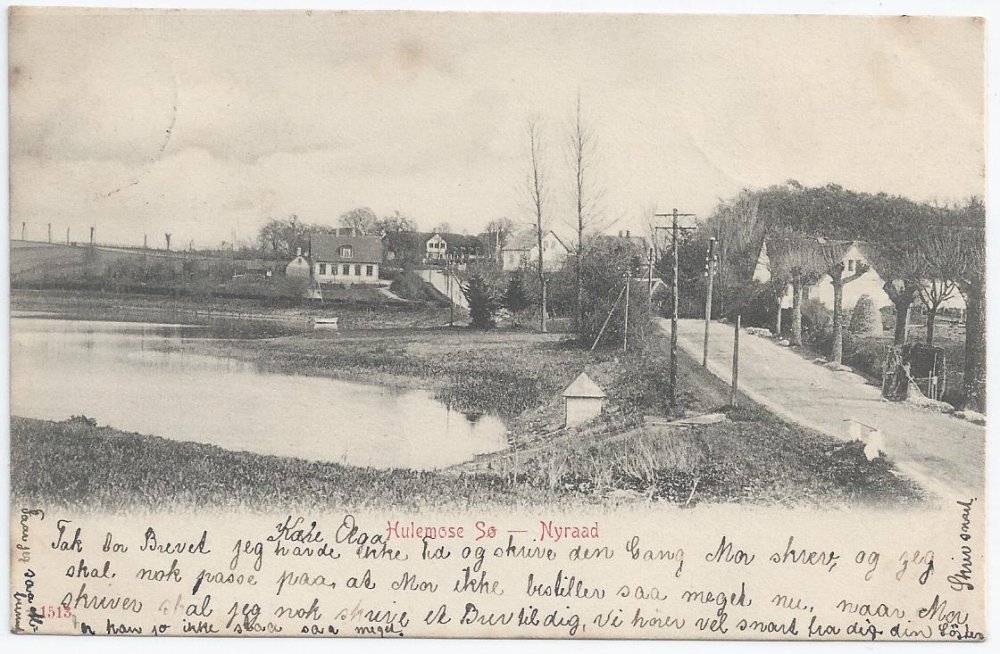 Hulemose Sø — Nyraad
Kære Olga
Tak for Brevet jeg havde ikke Tid og skrive den Gang Mor skrev, og jeg
skal nok passe paa, at Mor ikke bestiller saa meget nu, naar Mor
skriver skal jeg nok skrive et Brev til dig, Vi hører vel snart fra dig din Søster
kan jo ikke staa saa meget.
1513
Skriv snart